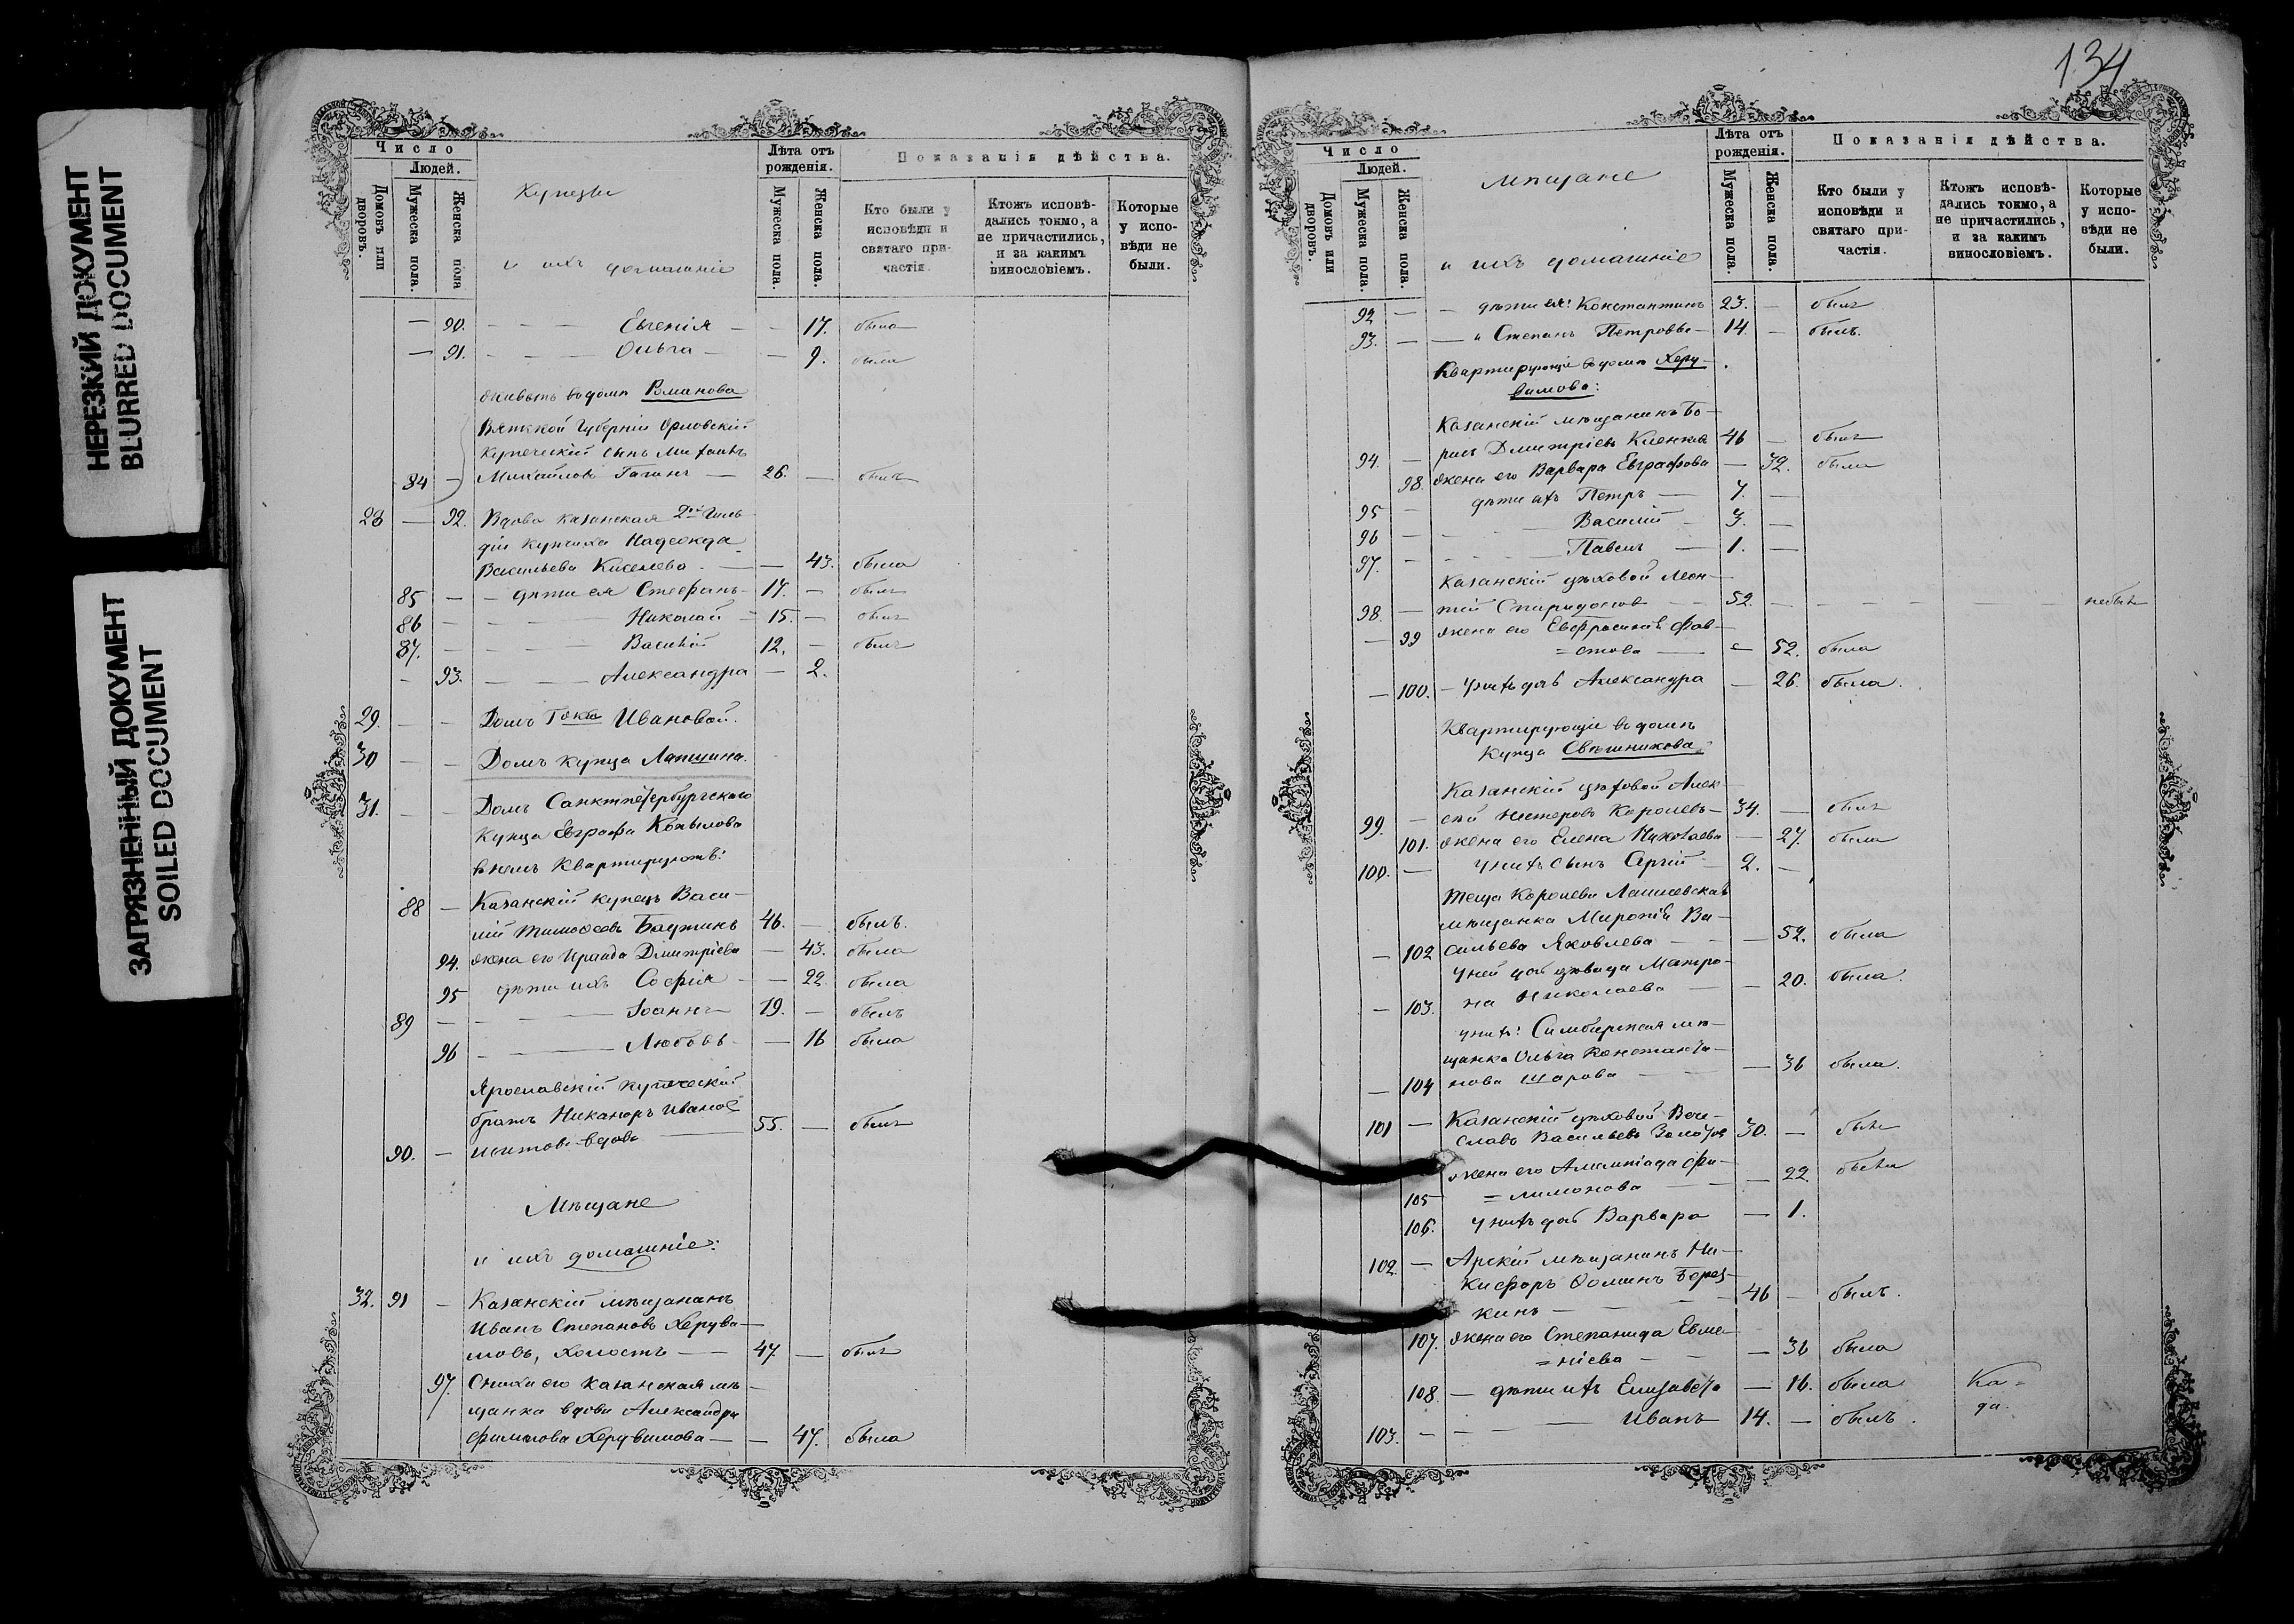 НЕРЕЗКИЙ ДОКУМЕНТ
BLURRED DOCUMENT
ЗАГРЯЗНЕННЫЙ ДОКУМЕНТ
SOILED DOCUMENT
Число
Людей.
Домовъ или дворовъ.
Мужеска пола.
Женска пола
Купцы
и ихъ домашніе
Лѣта отъ рожденія.
Мужеска пола.
Женска пола.
Показанія дѣйства.
Кто были у исповѣди и святаго причастія.
Ктожъ исповѣдались токмо, а не причастились, и за какимъ винословіемъ.
Которые у исповѣди не были.
— 90. — — — Евгенія — — 17. была
— 91. — — — Ольга — — 9. была
въ домѣ
Вятской Губерніи Орловскій
купеческій сынъ
84 — Михайловъ — 26. — былъ
28 — 92. Вдова казанская 2й Гиль
діи купчиха Надежда
Васильева Киселева — — 43. была
85 — — дѣти ея Стефанъ — 17. — былъ
86 — — — Николай — 15. — былъ
87. — — — Василій 12. — былъ
— 93. — — Александра — 2.
29. — — Домъ Ивановой.
30 — — Домъ купца Лапшина.
31. — — Домъ Санктпетербургскаго
купца Евграфа Копылова
въ немъ квартируютъ:
88 — Казанскій купецъ Васи—
лій 46. — былъ.
94. жена его Ираида Дмитріева — 43. была
95 дѣти ихъ Софія — — 22. была
89 — — — Іоаннъ 19. — былъ
96 — — Любовь — — 16 была
Ярославскій купеческій
братъ Никаноръ Ивановъ
90. — вдовъ — 55. — былъ
Мѣщане
и ихъ домашніе:
32. 91 — Казанскій мѣщанинъ
Иванъ Степановъ Херуви—
мовъ, холостъ — 47. — былъ
97. Сноха его казанская мѣ—
щанка вдова Александра
Филипова Херувимова — — 47. была
134
Число
Людей.
Домовъ или дворовъ.
Мужеска пола.
Женска пола.
мѣщане
и ихъ домашніе
Лѣта отъ рожденія.
Мужеска пола.
Женска пола.
Показанія дѣйства.
Кто были у исповѣди и святаго причастія.
Ктожъ исповѣдались токмо, а не причастились, и за какимъ винословіемъ.
Которые у исповѣди не были.
92 — — дѣти ея: Константинъ 23. — былъ
93. — — и Степанъ Петровы — 14. — былъ.
Квартирующіе въ домѣ Херу—
вимова:
Казанскій мѣщанинъ Бо—
94. — рисъ Дмитріевъ 46 — былъ
98. жена его Варвара Евграфова — 32. была
95 — дѣти ихъ Петръ — 7. —
96 — — Василій — 3. —
97. — — Павелъ — 1. —
Казанскій цѣховой Леон—
98. — тій Спиридоновъ 52. — — — — небылъ
— 99 жена его Евфросинія Фав—
=стова — — 52. была
— 100. — у нихъ дочь Александра — 26. была.
Квартирующіе въ домѣ
купца Свѣшникова:
Казанскій цѣховой Алек
99. — сѣй Нестеровъ Королевъ — 34. — былъ
101. жена его Елена Николаева — 27. была
100. — у нихъ сынъ Сергій — 2. —
теща Королева Лаишевская
мѣщанка Миропія Ва—
— 102 сильева Яковлева — — 52. была
у ней дочь дѣвица Матро—
— 103. на Николаева — — 20. была.
у нихъ: Симбирская мѣ—
щанка Ольга Константи—
— 104 нова Шарова — — 36 была.
101 — Казанскій цѣховой Вяче—
славъ Васильевъ 30. — былъ
жена его Фи—
105 =лимонова — — 22. была
106. у нихъ дочь Варвара — 1.
102. — Арскій мѣщанинъ Ни—
кифоръ Ѳоминъ Берез—
кинъ — 46 — былъ.
107. жена его Степанида Евме—
=ніева — — 36 была
108 — дѣти ихъ Елизавета — 16. была
103. — — — Иванъ — 14. — былъ.
Ка=
да.